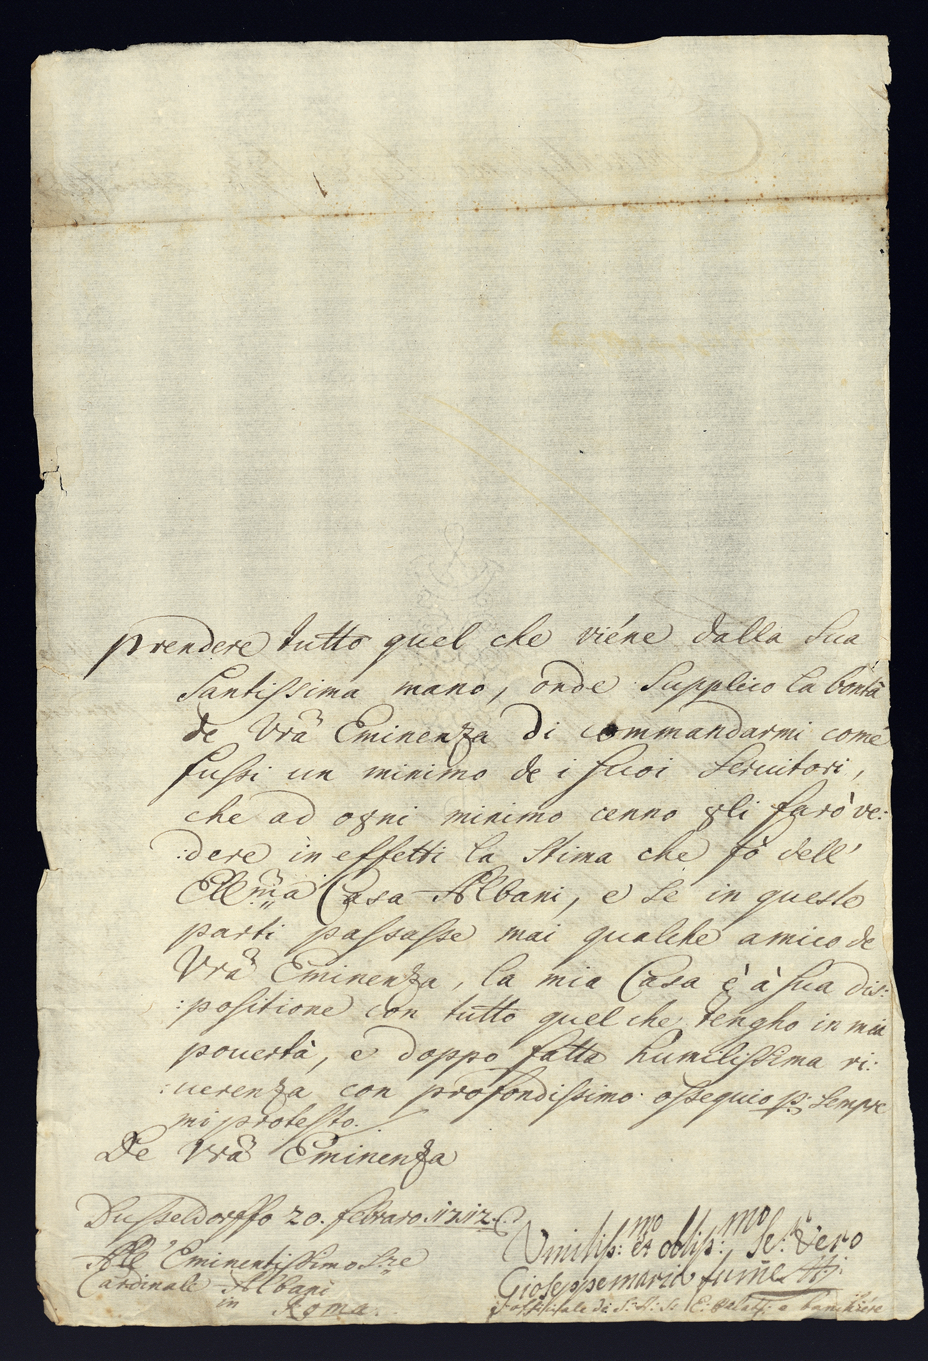 prendere tutto quel che viéne dalla sua
santissima mano, onde supplico la bontà
de Vrã Eminenza di commandarmi come
fussi un minimo de i suoi seruitori,
che ad ogni minimo cenno gli farò ve:
:dere in effetti la stima che fò dell'
Ecc:ma Casa Albani, e se in queste
parti passasse mai qualche amico de
Vrã Eminenza, la mia Casa è à sua dis:
:positione con tutto quel che tengho in mia
pouertà, e doppo fatta humilissima ri:
:uerenza con profondissimo ossequio p: sempre
mi protesto.
De Vrã Eminenza
Dusseldorffo 20. febraro. 1712.
All' Eminentissimo Sre
Cardinale Albani
in Roma.
Vmiliss:mo et obliss:mo Se:r Vero
Gioseppemaria
e banchiére